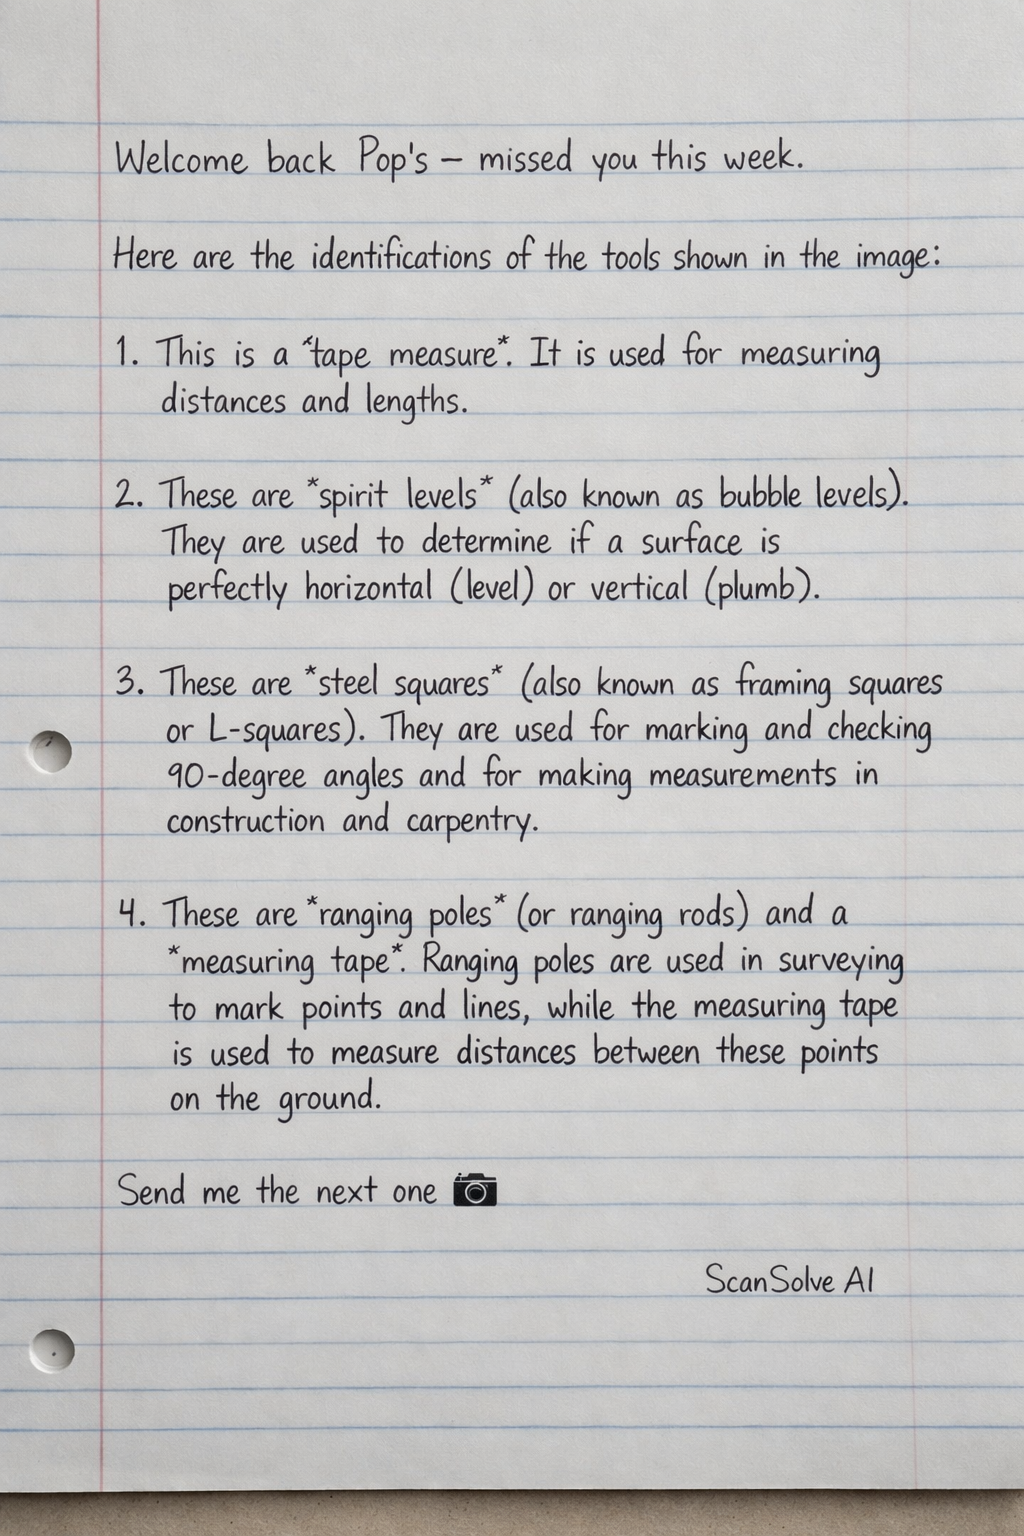 Welcome back Pop's – missed you this week.
Here are the identifications of the tools shown in the image:
1. This is a *tape measure*. It is used for measuring
distances and lengths.
2. These are *spirit levels* (also known as bubble levels).
They are used to determine if a surface is
perfectly horizontal (level) or vertical (plumb).
3. These are *steel squares* (also known as framing squares
or L-squares). They are used for marking and checking
90-degree angles and for making measurements in
construction and carpentry.
4. These are *ranging poles* (or ranging rods) and a
*measuring tape*. Ranging poles are used in surveying
to mark points and lines, while the measuring tape
is used to measure distances between these points
on the ground.
Send me the next one 📷
ScanSolve AI